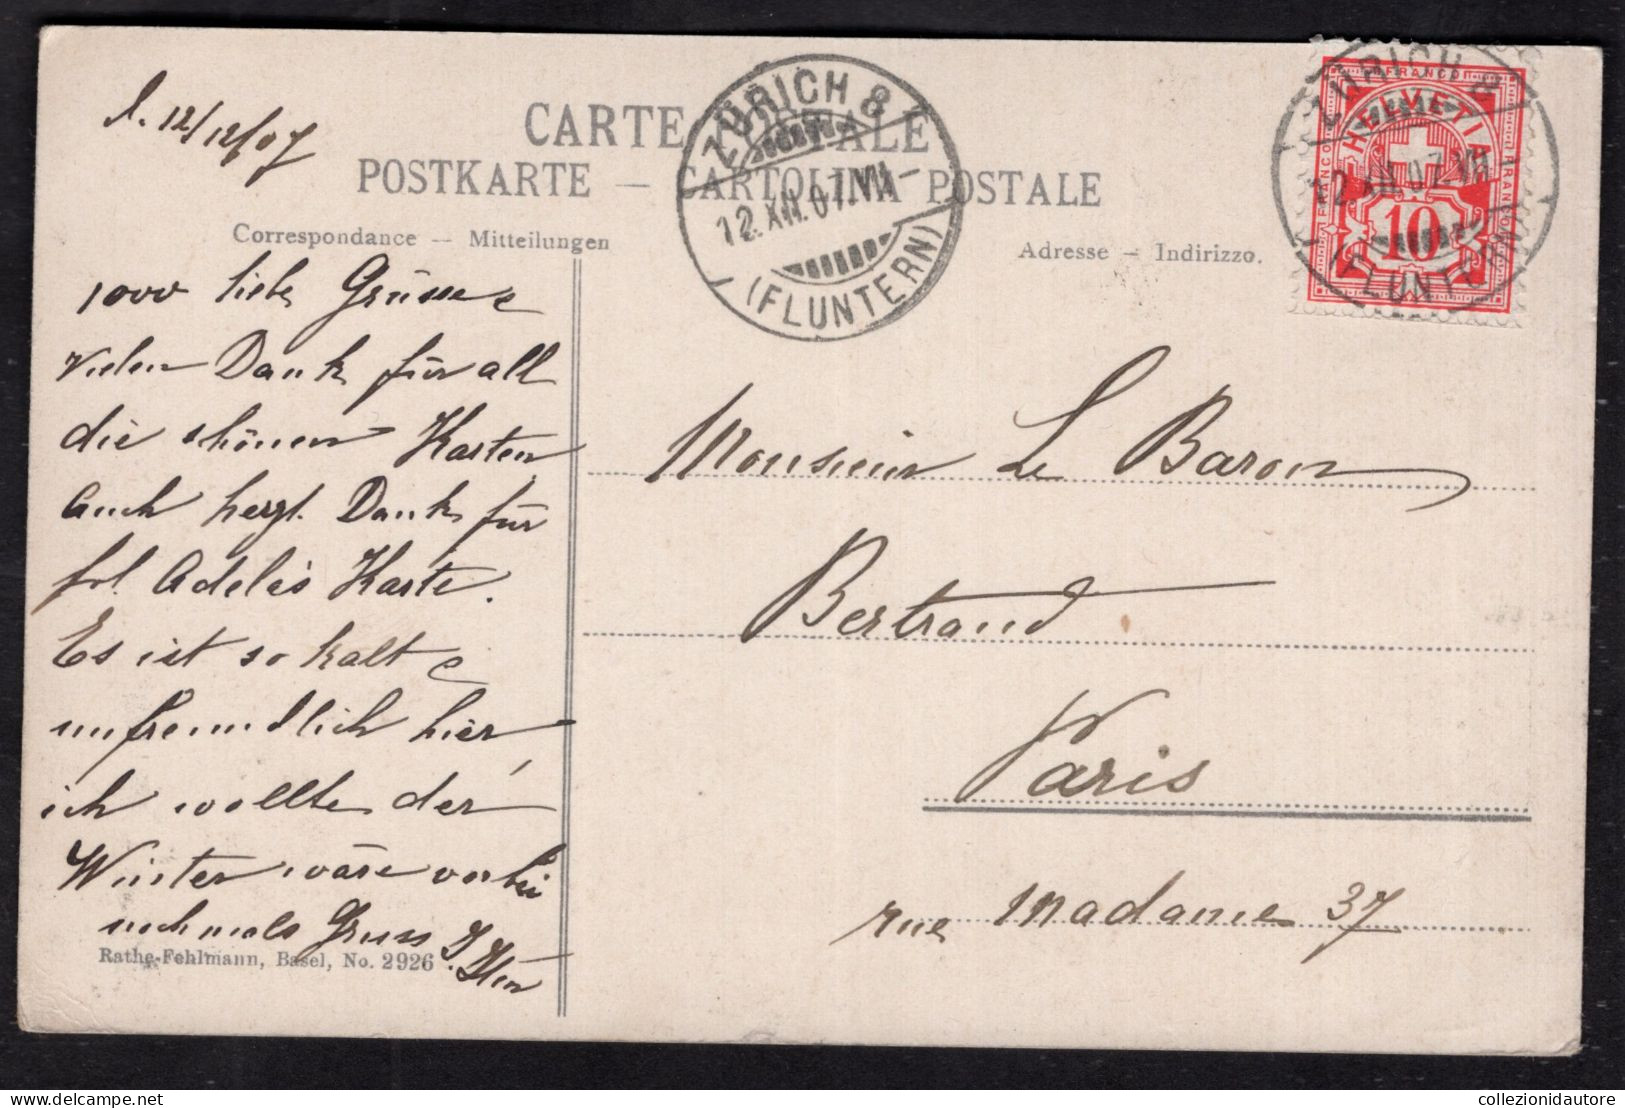 12/12/07
CARTE POSTALE
POSTKARTE — CARTOLINA POSTALE
Correspondance — Mitteilungen
Adresse — Indirizzo.
ZÜRICH 8
12.XII.07.VII–
(FLUNTERN)
ZÜRICH 8
12.XII.07.VII–
(FLUNTERN)
FRANCO
FRANCO
FRANCO
HELVETIA
10
1000 liebe Grüsse
vielen Dank für all
die schönen Karten
Auch herzl. Dank für
frl. Adeles Karte.
Es ist so kalt &
unfreundlich hier
ich wollte der
Winter wäre vorbei
nochmals Gruss
Monsieur Le Baron
Bertrand
Paris
rue Madame 37
Rathe-Fehlmann, Basel, No. 2926
delcampe.net
collezionidautore